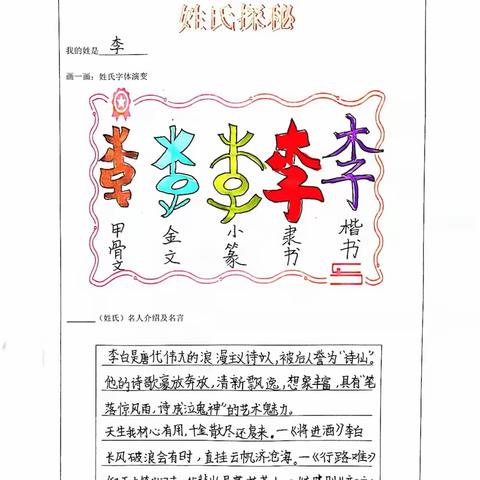 姓氏探秘
我的姓是 李
画一画：姓氏字体演变
李 李 李 李 李
甲骨文 金文 小篆 隶书 楷书
（姓氏）名人介绍及名言
李白是唐代伟大的浪漫主义诗人，被后人誉为"诗仙"。
他的诗歌豪放奔放，清新飘逸，想象丰富，具有"笔
落惊风雨，诗成泣鬼神"的艺术魅力。
天生我材必有用，千金散尽还复来。—《将进酒》李白
长风破浪会有时，直挂云帆济沧海。—《行路难》